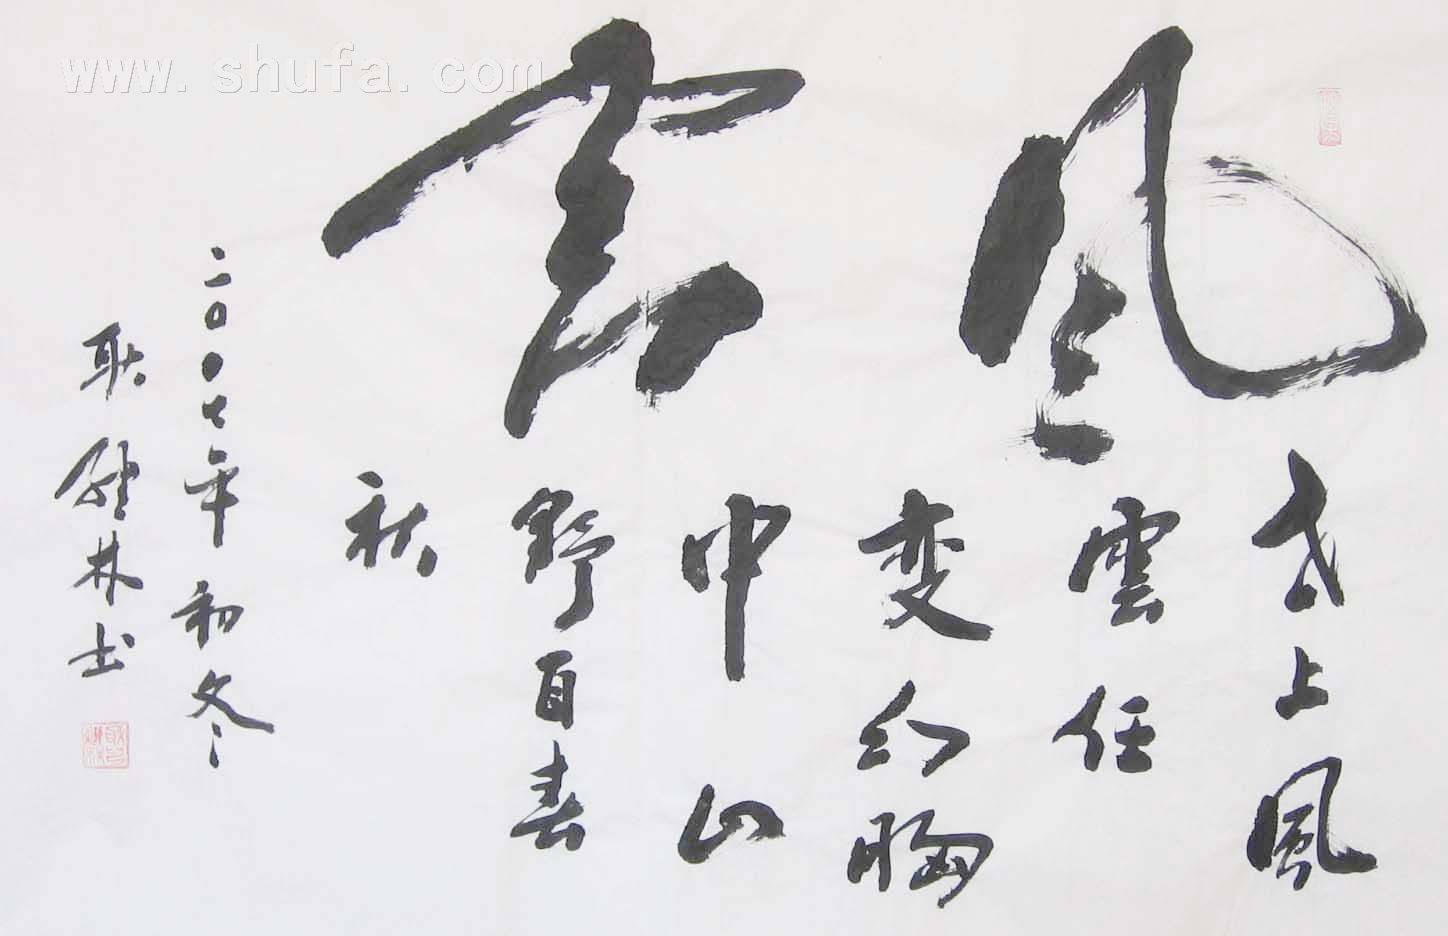 www.shufa.com
風雲
世上風
雲任
变幻胸
中山
野自春
秋
二〇〇七年初冬
耿林书